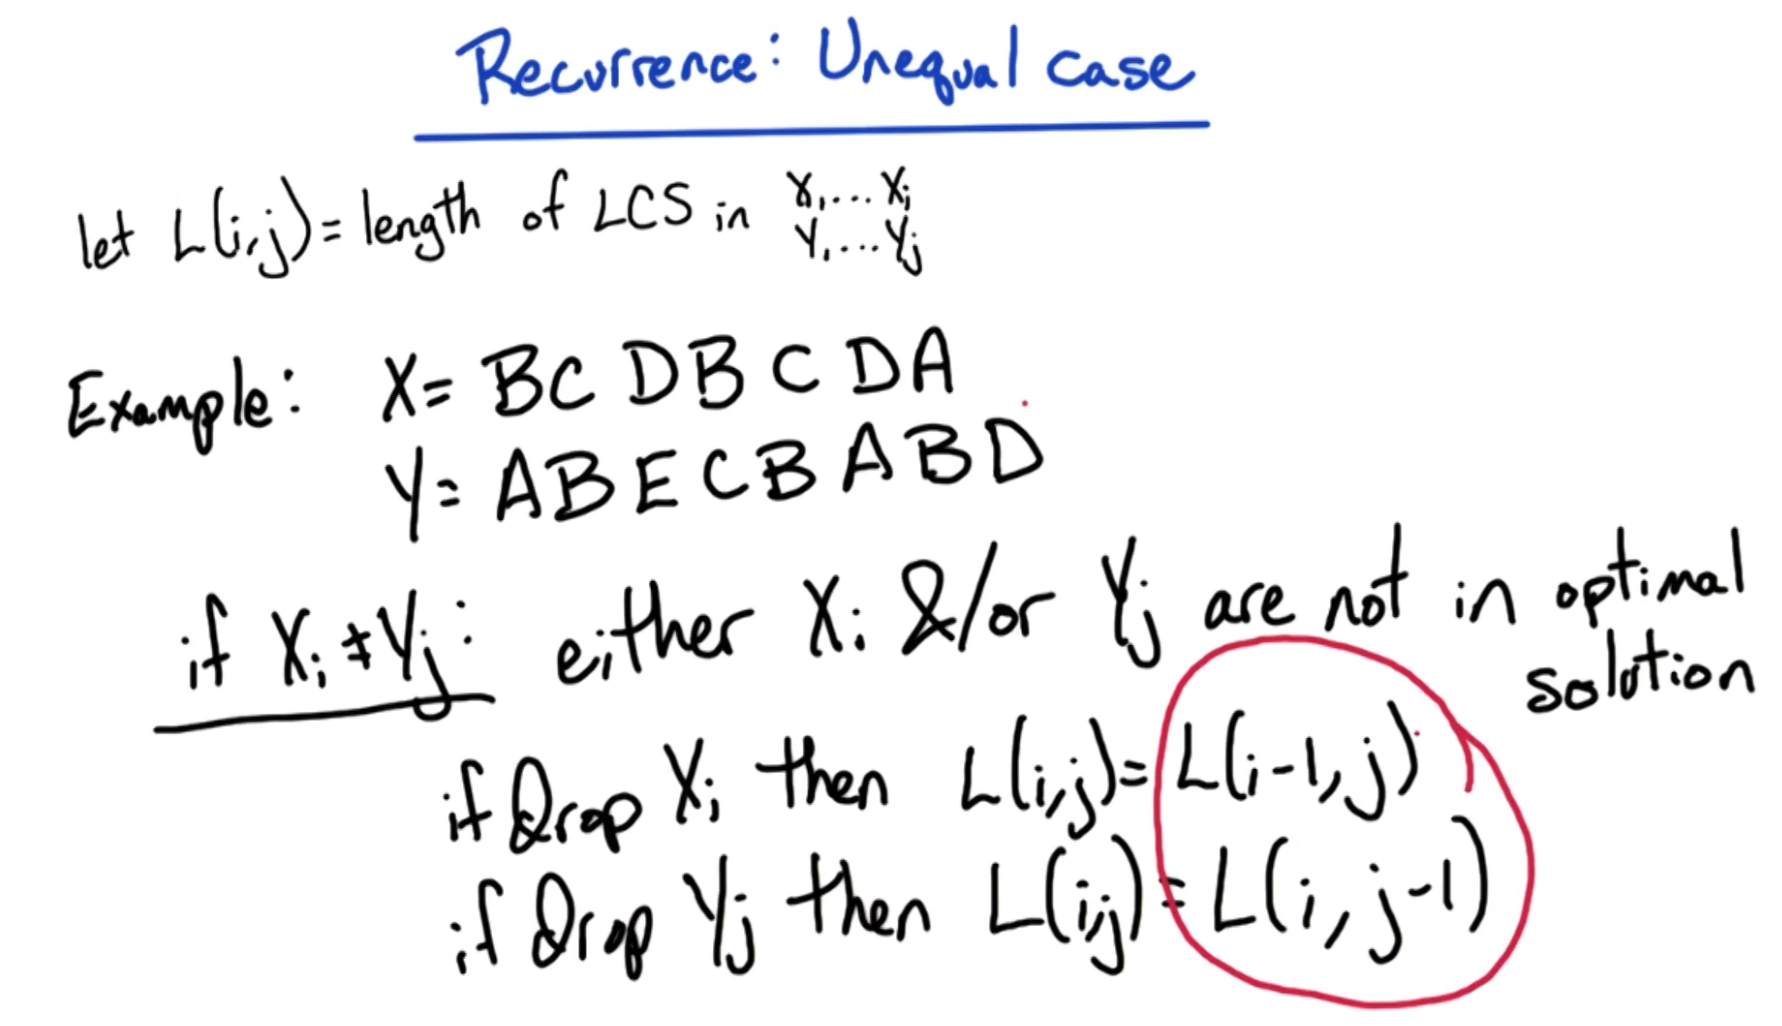 Recurrence: Unequal case
let L(i,j) = length of LCS in X₁...Xᵢ
Y₁...Yⱼ
Example: X= BCDBCDA
Y= ABECBABD
if Xᵢ ≠ Yⱼ: either Xᵢ &/or Yⱼ are not in optimal
solution
if Drop Xᵢ then L(i,j)= L(i-1,j)
if Drop Yⱼ then L(i,j)= L(i,j-1)